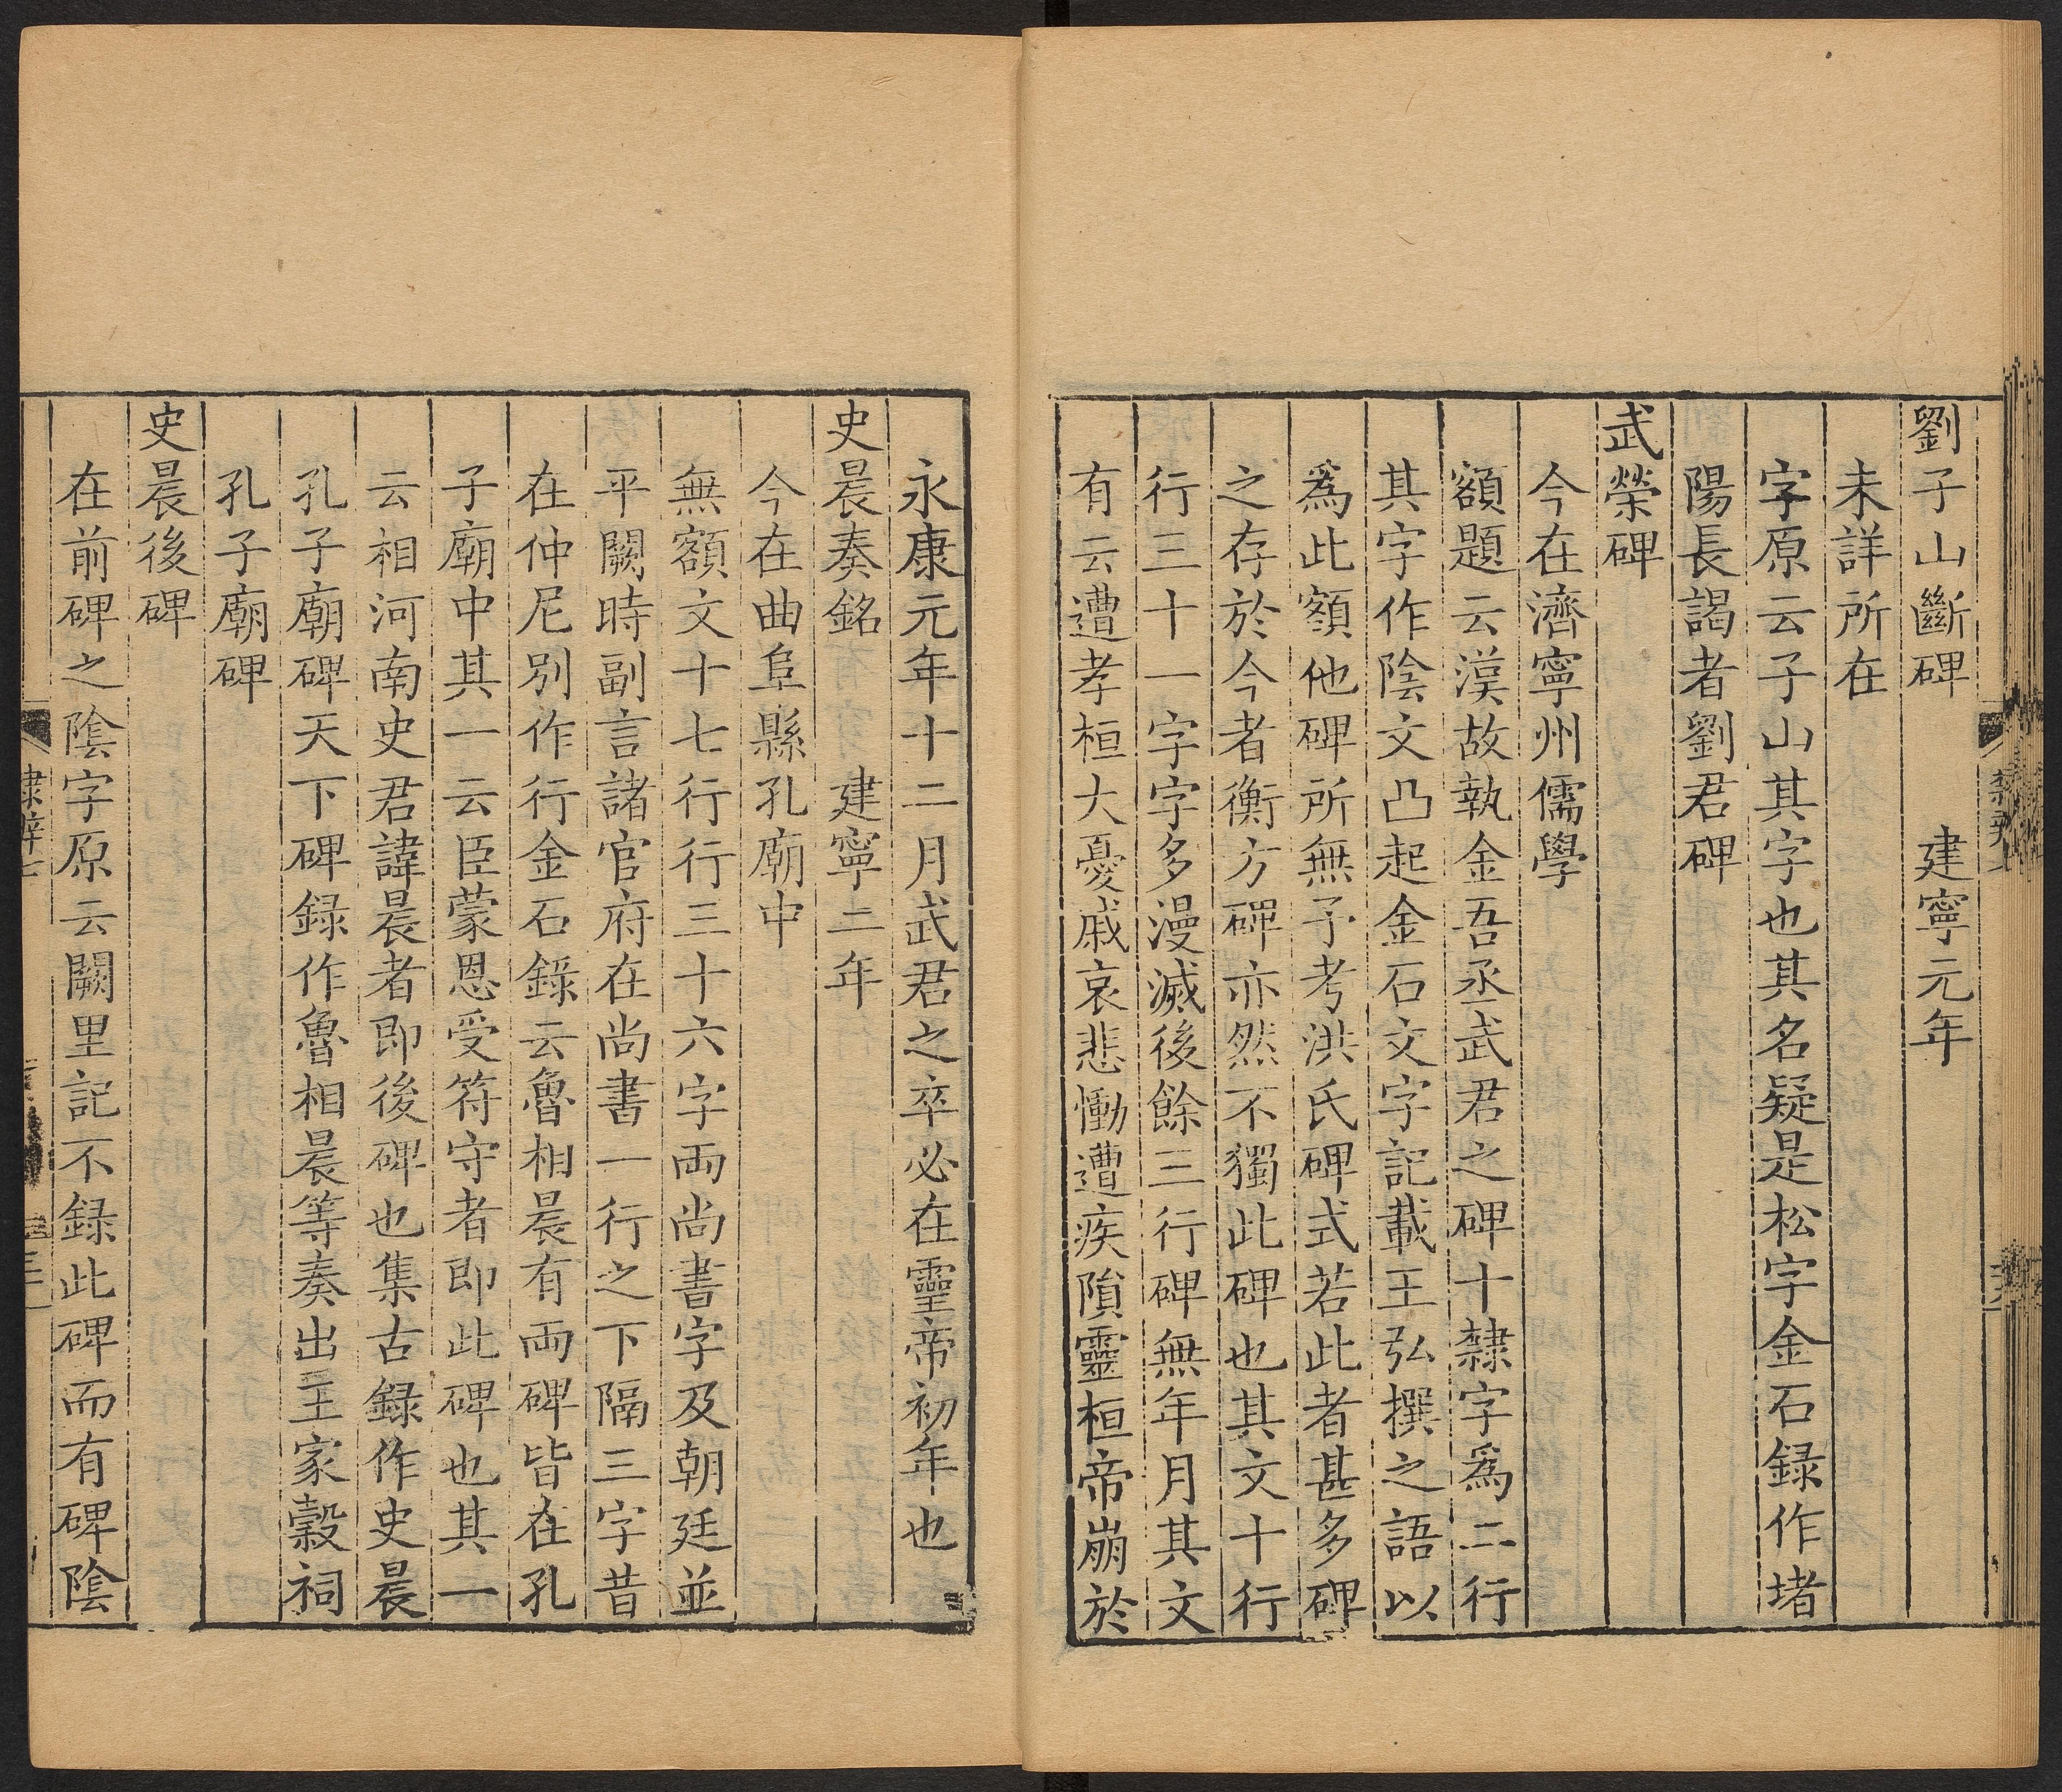 劉子山斷碑　建寧元年
未詳所在
字原云子山其字也其名疑是松字金石録作堵
陽長謁者劉君碑
武榮碑
今在濟寧州儒學
額題云漢故執金吾丞武君之碑十隸字爲二行
其字作陰文凸起金石文字記載王弘撰之語以
爲此額他碑所無予考洪氏碑式若此者甚多碑
之存於今者衡方碑亦然不獨此碑也其文十行
行三十一字字多漫滅後餘三行碑無年月其文
有云遭孝桓大憂戚哀悲慟遭疾隕靈桓帝崩於
永康元年十二月武君之卒必在靈帝初年也
史晨奏銘　建寧二年
今在曲阜縣孔廟中
無額文十七行行三十六字兩尚書字及朝廷並
平闕時副言諸官府在尚書一行之下隔三字昔
在仲尼別作行金石錄云魯相晨有兩碑皆在孔
子廟中其一云臣蒙恩受符守者即此碑也其一
云相河南史君諱晨者即後碑也集古録作史晨
孔子廟碑天下碑録作魯相晨等奏出王家穀祠
孔子廟碑
史晨後碑
在前碑之陰字原云闕里記不録此碑而有碑陰
隸辨七